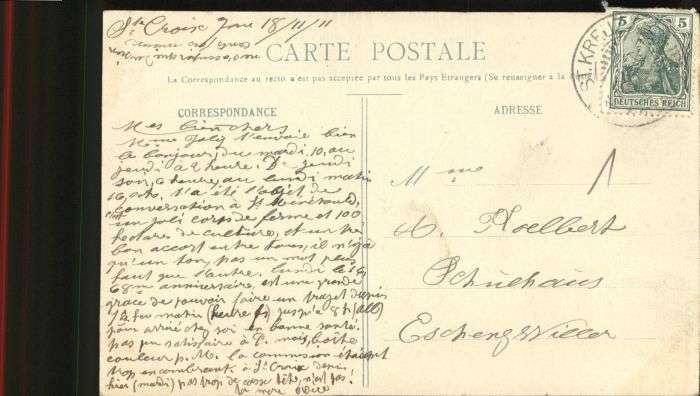 Ste Croix 18/11/11
CARTE POSTALE
La Correspondance au recto n'est pas acceptée par tous les Pays Etrangers (Se renseigner à la
CORRESPONDANCE
ADRESSE
ST. KREU
5 5
DEUTSCHES REICH
Mes bien chers
Mme Joly t'envoie bien
le bonjour, du mardi, 10, au
jeudi à 2 heures. De jeudi
soir, 6 heures, au lundi matin
16, t'a été l'objet de
conversation à St
un joli corps de ferme et 100
hectares de culture, et un très
bon accort entre tous, il n'y a
qu'un ton, pas un mot plus
haut que l'autre. lundi le 16
68me anniversaire, est une grande
grace de pouvoir faire un trajet depuis
matin (heure fr) jusqu'à 8h (all)
pour arrivé chez soi en bonne santé.
pas pu satisfaire à P. mois, boîte
couleur p. M. la commission étai
trop encombrant à Ste Croix
hier (mardi) pas trop de casse tête, n'est pas!
ta mère
Mme
A. Koelbert
Schulhaus
Eschenzwiller